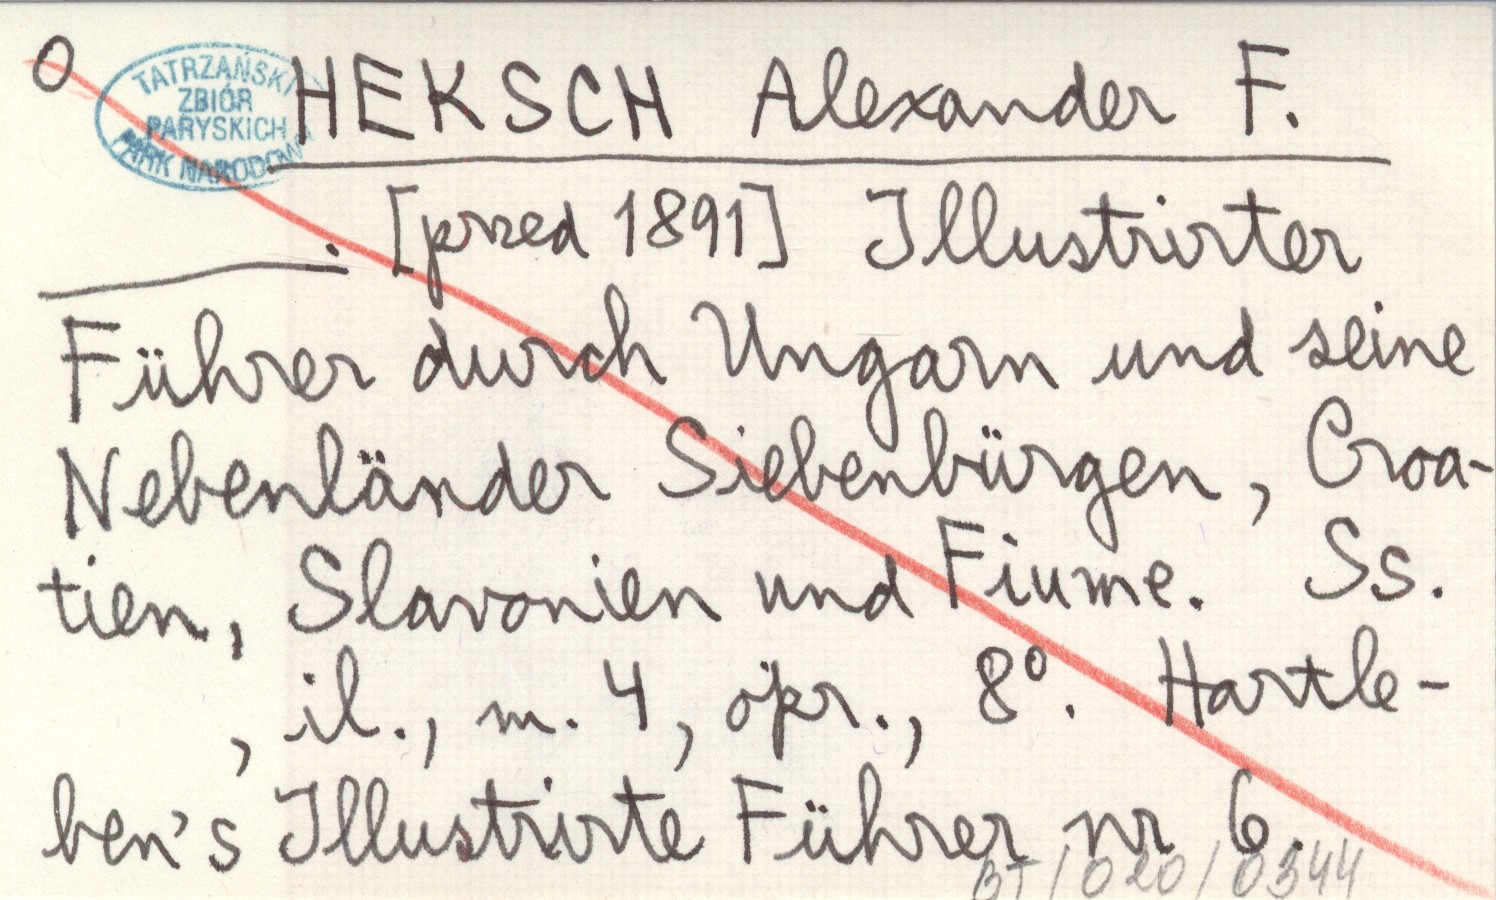 O
TATRZAŃSKI
ZBIÓR
PARYSKICH
PARK NARODOW
HEKSCH Alexander F.
. [przed 1891] Illustrirter
Führer durch Ungarn und seine
Nebenländer Siebenbürgen, Croa-
tien, Slavonien und Fiume. Ss.
, il., m. 4, opr., 8°. Hartle-
ben's Illustrirte Führer nr 6.
BT/020/0344